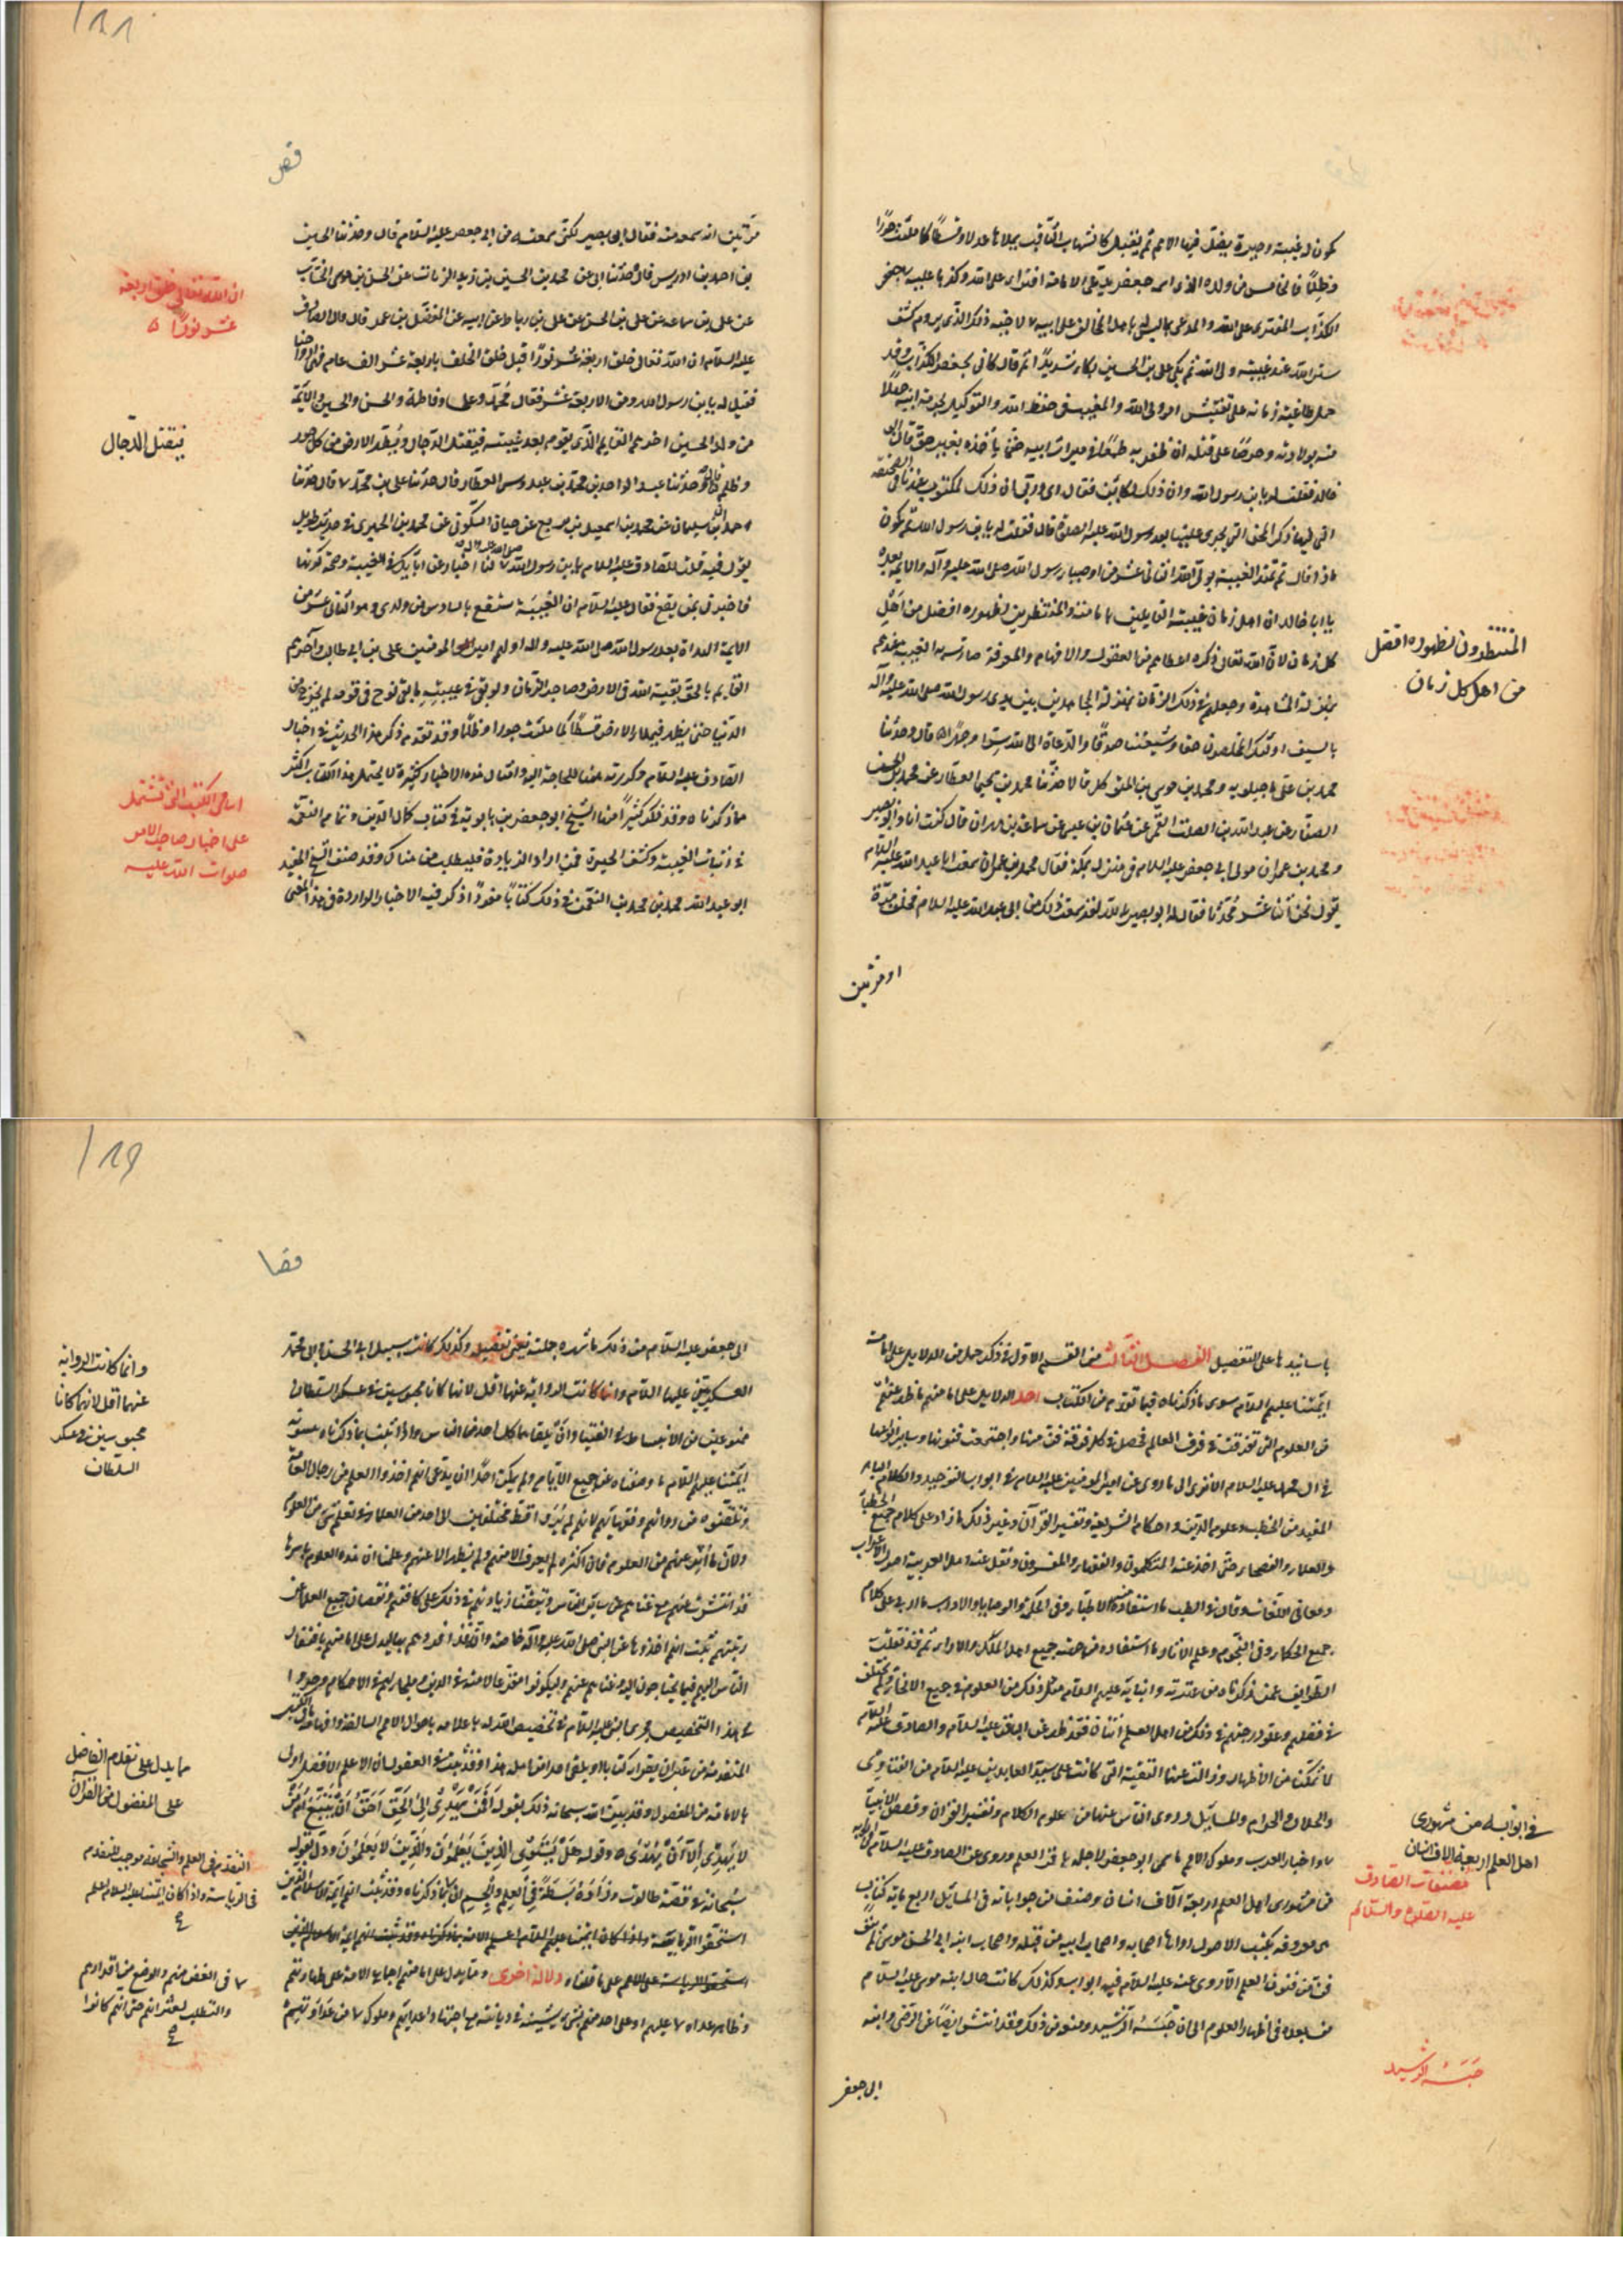 ١٨٨
قص
يكون له غيبة وحيرة يضل فيها الامم ثم يقبل كالشهاب الثاقب يملأها عدلا وقسطا كما ملئت جورا
وظلما
الكذاب المفترى على الله والمدعى ما ليس باهل المخالف على ابيه
ستر الله عند غيبة ولى الله ثم بكى على بن الحسين بكاء شديدا ثم قال كانى بجعفر الكذاب وقد
حمل طاغية زمانه على تفتيش امر ولى الله والمغيب فى حفظ الله والتوكيل بحرم ابيه جهلا
منه بولادته وحرصا على قتله ان ظفر به طمعا فى ميراث ابيه حتى يأخذه بغير حق قال ابو
خالد فقلت له يا بن رسول الله وان ذلك لكائن فقال اى وربى ان ذلك لمكتوب عندنا فى الصحيفة
التى فيها ذكر المحن التى يجرى علينا بعد رسول الله عليه الصلوة قال فقلت له يا بن رسول الله ثم يكون
ماذا قال ثم تمتد الغيبة بولى الله الثانى عشر من اوصياء رسول الله صلى الله عليه وآله والايمة بعده
يا ابا خالد ان اهل زمان غيبته القايلين بامامته والمنتظرين لظهوره افضل من اهل
كل زمان لان الله تعالى ذكره اعطاهم من العقول والافهام والمعرفة ما صارت به الغيبة عندهم
بمنزلة المشاهدة وجعلهم فى ذلك الزمان بمنزلة المجاهدين بين يدى رسول الله صلى الله عليه وآله
بالسيف اولئك المخلصون حقا وشيعتنا صدقا والدعاة الى الله سرا وجهرا قال وحدثنا
محمد بن على ماجيلويه ومحمد بن موسى بن المتوكل قالا حدثنا محمد بن يحيى العطار عن محمد بن الحسن
الصفار عن عبد الله بن الصلت القمى عن عثمان بن عيسى عن سماعة بن مهران قال كنت انا وابو بصير
ومحمد بن عمران مولى ابى جعفر عليه السلام فى منزل بمكة فقال محمد بن عمران سمعت ابا عبد الله عليه السلام
يقول نحن اثنا عشر محدثا فقال له ابو بصير بالله لقد سمعت ذلك من ابى عبد الله عليه السلام فحلفه مرة
او مرتين
المنتظرون لظهوره افضل
من اهل كل زمان
مرتين انه سمعه منه فقال ابو بصير لكنى سمعته من ابى جعفر عليه السلام قال وحدثنا الحسين
بن احمد بن ادريس قال حدثنا ابى عن محمد بن الحسين بن زيد الزيات عن الحسن بن موسى الخشاب
عن على بن سماعة عن على بن الحسن بن رباط عن ابيه عن المفضل بن عمر قال قال الصادق
عليه السلام ان الله تعالى خلق اربعة عشر نورا قبل خلق الخلق باربعة عشر الف عام فهى ارواحنا
فقيل له يا بن رسول الله ومن الاربعة عشر فقال محمد وعلى وفاطمة والحسن والحسين والايمة
من ولد الحسين آخرهم القايم الذى يقوم بعد غيبته فيقتل الدجال ويطهر الارض من كل جور
وظلم قال وحدثنا عبد الواحد بن محمد بن عبدوس العطار قال حدثنا على بن محمد قال حدثنا
حمدان بن سليمان عن محمد بن اسمعيل بن بزيع عن حيان السكونى عن محمد بن الحميرى فى حديث طويل
يقول فيه قلت للصادق عليه السلام يا بن رسول الله لنا اخبار عن آبائك فى الغيبة وصحة كونها
فاخبرنى بمن يقع فقال عليه السلام ان الغيبة ستقع بالسادس من ولدى وهو الثانى عشر من
الايمة الهداة بعد رسول الله صلى الله عليه وآله اولهم امير المؤمنين على بن ابى طالب وآخرهم
القايم بالحق بقية الله فى الارض وصاحب الزمان ولو بقى فى غيبته ما بقى نوح فى قومه لم يخرج من
الدنيا حتى يظهر فيملأ الارض قسطا كما ملئت جورا وظلما وقد تقدم ذكر هذا الحديث فى اخبار
الصادق عليه السلام وكررته هنا للحاجة اليه وامثال هذه الاخبار كثيرة لا يحتمل هذا الكتاب اكثر
مما ذكرناه وقد ذكر كثيرا منها الشيخ ابو جعفر بن بابويه فى كتاب كمال الدين وتمام النعمة
فى اثبات الغيبة وكشف الحيرة فمن اراد الزيادة فليطلب من هناك وقد صنف الشيخ المفيد
ابو عبد الله محمد بن محمد بن النعمن فى ذلك كتابا مفردا ذكر فيه الاخبار الواردة فى هذا المعنى
ان الله تعالى خلق اربعة
عشر نورا
فيقتل الدجال
اسامى الكتب التى تشتمل
على اخبار صاحب الامر
صلوات الله عليه
١٨٩
قصا
باسانيدها على التفصيل الفصل الثالث من القسم الاول فى ذكر جمل من الدلايل على امامة
ايمتنا عليهم السلام سوى ما ذكرناه فيما تقدم من الكتاب احد الدلايل على امامتهم ما ظهر عنهم
من العلوم التى تفرقت فى فرق العالم فحصل فى كل فرقة فن منها واجتمعت فنونها وساير انواعها
فى آل محمد عليه السلام الا ترى الى ما روى عن امير المؤمنين عليه السلام فى ابواب التوحيد والكلام الباهر
المفيد من الخطب وعلوم الدين واحكام الشريعة وتفسير القرآن وغير ذلك ما زاد على كلام جميع الخطباء
والعلماء والفصحاء حتى اخذ عنه المتكلمون والفقهاء والمفسرون ونقل عنه اهل العربية اصول الاعراب
ومعانى اللغات وقال فى الطب ما استفاد منه الاطباء وفى الحكمة والوصايا والآداب ما اربى على كلام
جميع الحكماء وفى النجوم وعلم الآثار ما استفاده من جهته جميع اهل الملل والآراء ثم قد نقلت
الطوايف عمن ذكرناه من عترته وابنائه عليهم السلام مثل ذلك من العلوم فى جميع الانحاء ولم يختلف
فى فضلهم وعلو درجتهم فى ذلك من اهل العلم اثنان فقد ظهر عن الباقر عليه السلام والصادق عليه السلام
لما تمكنا من الاظهار وزالت عنهما التقية التى كانت على سيد العابدين عليه السلام من الفتاوى
والحلال والحرام والمسايل وروى الناس عنهما من علوم الكلام وتفسير القرآن وقصص الانبياء
واخبار العرب وملوك الامم ما سمى ابو جعفر لاجله باقر العلم وروى عن الصادق عليه السلام فى ابوابه
من مشهورى اهل العلم اربعة آلاف انسان وصنف من جواباته فى المسايل اربع ماية كتاب
معروفة بكتب الاصول رواها اصحابه واصحاب ابيه من قبله واصحاب ابنه ابى الحسن موسى
فن من فنون العلم الا روى عنه عليه السلام فيه ابواب وكذلك كانت حال ابنه موسى عليه السلام
من بعده فى اظهار العلوم الى ان حبسه الرشيد ومنعه من ذلك وقد انتشر ايضا عن الرضى وابنه
ابى جعفر
فى ابوابه من مشهورى
اهل العلم اربعة الاف انسان
مصنفات الصادق
عليه الصلوة والسلام
حبسه الرشيد
ابى جعفر عليه السلام من ذلك ما شهرة جملته تغنى عن تفصيله وكذلك كانت سبيل ابى الحسن وابى محمد
العسكريين عليهما السلام وانما كانت الرواية عنهما اقل لانهما كانا محبوسين فى عسكر السلطان
ممنوعين من الانبساط فى الفتيا وان يلقاهما كل احد من الناس واذا ثبت بما ذكرناه
ايمتنا عليهم السلام بما وصفناه عن جميع الانام ولم يمكن احدا ان يدعى انهم اخذوا العلم من رجال العامة
وتلقنوه من رواتهم وفقهائهم لانهم لم يروا قط مختلفين الى احد من العلماء فى تعلم شئ من العلوم
ولان ما اثر عنهم من العلوم فان اكثره لم يعرف الا منهم ولم يظهر الا عنهم وعلمنا ان هذه العلوم باسرها
قد انتشرت عنهم مع غناهم عن ساير الناس وتيقنا زيادتهم فى ذلك على كافتهم ونقصان جميع العلماء عن
رتبتهم ثبت انهم اخذوها عن النبى صلى الله عليه وآله خاصة وانه قد افردهم بها ليدل على امامتهم بافتقار
الناس اليهم فيما يحتاجون اليه وغناهم عنهم وليكونوا مفزعا لامته فى الدين وملجأ لهم فى الاحكام وجروا
فى هذا التخصيص مجرى النبى عليه السلام فى تخصيص الله له باعلامه باحوال الامم السالفة وافهامه ما فى الكتب
المتقدمة من غير ان يقرأ كتابا او يلقى احدا من اهله هذا وقد ثبت فى العقول ان الاعلم الافضل اولى
بالامامة من المفضول وقد بين الله سبحانه ذلك بقوله أفمن يهدى الى الحق احق ان يتبع امن
لا يهدى الا ان يهدى وقوله هل يستوى الذين يعلمون والذين لا يعلمون ودل بقوله
سبحانه فى قصة طالوت وزاده بسطة فى العلم والجسم
استحقوا الرياسة
دلالة اخرى ومما يدل على امامتهم اجماع الامة على طهارتهم
وظاهر عدالتهم
وانما كانت الرواية
عنهما اقل لانهما كانا
محبوسين فى عسكر
السلطان
مما يدل على تقدم الفاضل
على المفضول من القرآن
التقدم فى العلم والشجاعة موجب للتقدم
فى الرياسة واذا كان ايمتنا عليهم السلام اعلم
فى الغض منهم والوضع من اقدارهم
والتطلب لعثراتهم حتى انهم كانوا